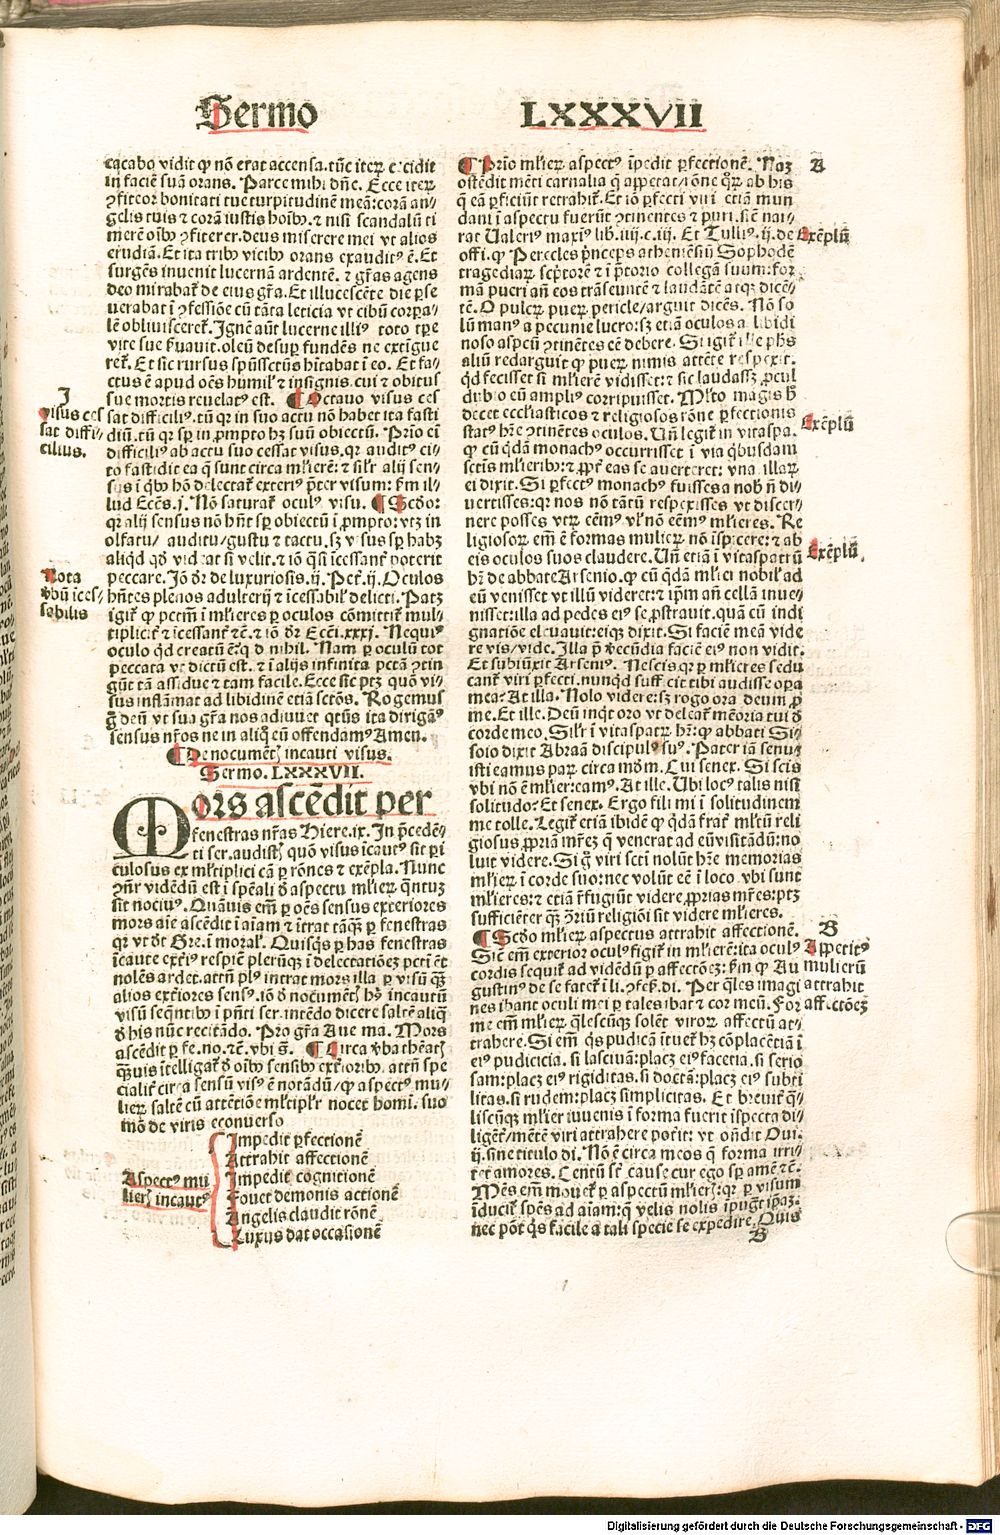 Sermo LXXXVII
cacabo vidit ꝙ nō erat accensa. tūc iteꝝ cecidit
in faciē suā orans. Parce mihi dn̄e. Ecce iteꝝ
ꝯfiteor bonitati tue turpitudinē meā: corā an⸗
gelis tuis ⁊ corā iustis hoībꝰ. ⁊ nisi scandalū ti
merē oībꝰ ꝯfiterer. deus miserere mei vt alios
erudiā. Et ita tribꝰ vicibꝰ orans exauditꝰ ē. Et
surgēs invenit lucernā ardentē. ⁊ gr̄as agens
deo mirabat̄ de eius gr̄a. Et illucescēte die ꝑse
verabat ī ꝯfessiōe cū tāta leticia vt cibū corpa⸗
lē oblivisceret̄. Ignē aūt lucerne illiꝰ toto tꝑe
vite sue ẜuavit. oleū desuꝑ fundēs ne extīgue
ret̄. Et sic rursus spūssctūs hītabat ī eo. Et fa⸗
ctus ē apud oēs humil̓ ⁊ insignis. cui ⁊ obitus
sue mortis revelatꝰ est. ¶ Octavo visus ces
sat difficiliꝰ. tū qꝛ in suo actu nō habet ita fasti
diū. tū qꝛ sꝑ in ꝓmpto hꝫ suū obiectū. Prīo em̄
difficiliꝰ ab actu suo cessat visus. qꝛ auditꝰ ci⸗
to fastidit ea q̄ sunt circa ml̓ierē: ⁊ sil̓r alij sen⸗
sus ī qibꝰ hō delectat̄ exteriꝰ p̄ter visum: ẜm il⸗
lud Eccēs. j. Nō saturat̄ oculꝰ visu. ¶ Scdoꝛ
qꝛ alij sensus nō hn̄t sꝑ obiectū ī ꝓmpto: vtꝫ in
olfactu/ auditu/ gustu ⁊ tactu. sꝫ visus sꝑ habꝫ
aliqd qd̓ videat si velit. ⁊ iō q̄si īcessant̄ poterit
peccare. Iō dr̄ de luxuriosis. ij. Pet̄. ij. Oculos
hn̄tes plenos adulterij ⁊ īcessabil̓ delicti. Patꝫ
igit̄ ꝙ pctm̄ ī ml̓ieres ꝑ oculos cōmittit̄ mul⸗
tiplicit̄ ⁊ īcessant̄ ⁊c̄. ⁊ iō dr̄ Eccī. xxxj. Nequiꝰ
oculo qd creatū ē: q̄ d. nihil. Nam ꝑ oculū tot
peccata vt dictū est. ⁊ ī alijs infinita pctā ꝯtin
gūt tā assidue ⁊ tam facile. Ecce sic ptꝫ quō vi⸗
sus inflāmat ad libidinē etiā sctōs. Rogemus
g̊ deū vt sua gr̄a nos adiuuet qtūs ita dirigaꝰ
sensus nr̄os ne in aliq eū offendamꝰ Amen.
¶ De nocumētꝭ incauti visus.
Sermo. LXXXVII.
Mors ascēdit per
fenestras nr̄as Hiere. ix. In p̄cedē⸗
ti ser. audistꝭ quō visus īcautꝰ sit ꝑi
culosus ex ml̓tiplici cā ꝑ rōnes ⁊ exēpla. Nunc
ꝯn̄r vidēdū est ī spēali d̓ aspectu ml̓ieꝝ q̄ntuꝫ
sit nociuꝰ. Quāuis em̄ ꝑ oēs sensus exteriores
mors aīe ascēdit ī aīam ⁊ ītrat tāqꝫ ꝑ fenestras
qꝛ vt dt̄ Gre. ī moral̓. Quisqs ꝑ has fenestras
īcaute extēꝰ respic̄ plerūqꝫ ī delectatiōeꝫ pcti ēt
nolēs ardet. attn̄ plꝰ intrat mors illa ꝑ visū qꝫ
alios exteriores sensꝰ. iō d̓ nocumētꝭ hꝰ incautū
visū seqntibꝰ ī pn̄ti ser. intēdo dicere saltē aliq
d̓ his nūc recitādo. Pro gr̄a Aue ma. Mors
ascēdit ꝑ fe. no. ⁊c̄. vbi s̄. ¶ Circa v̓ba thēatꝭ
qꝫuis ītelligat̄ d̓ oībꝰ sensibꝰ exteriorībꝰ. attn̄ spe
cialit̄ circa sensū visꝰ ē notādū/ ꝙ aspectꝰ mu⸗
lieꝝ saltē cū attētiōe ml̓tipl̓r nocet homi. suo
mō de viris econuerso
Aspectꝰ mu
lieꝝ incautꝰ
Impedit ꝑfectionē
Attrahit affectionē
Impedit cognitionē
Fouet demonis actionē
Angelis claudit rōnē
Luxus dat occasionē
J
Visus ces
sat diffi⸗
cilius.
Nota
v̓bū īces⸗
sabilis
¶ Prīo ml̓ieꝝ aspectꝰ īpedit ꝑfectionē. Naꝫ
ostēdit mēti carnalia q̄ appetat/ rōne qꝝ ab his
q̄ eā ꝑficiūt retrahit̄. Et iō ꝑfecti viri etiā mun
dani ī aspectu fuerūt ꝯtinentes ⁊ puri. sic̄ nar⸗
rat Ualeriꝰ maxiꝰ lib. iiij. c. iij. Et Tulliꝰ. ij. de
offi. ꝙ Perecles p̄nceps atheniēsiū Sophodē
tragediaꝝ sc̄ptorē ⁊ ī p̄torio collegā suum: for
mā pueri añ eos trāseuntē ⁊ laudātē atqꝫ dicē⸗
tē. O pulceꝝ pueꝝ pericle/ arguit dicēs. Nō so
lū manꝰ a pecunie lucro: sꝫ etiā oculos a libidi
noso aspcū ꝯtinentes eē debere. Si igit̄ ille phs
aliū redarguit ꝙ pueꝝ nimis attēte respexit.
qd fecisset si ml̓ierē vidisset: ⁊ sic laudassꝫ ꝓcul
dubio eū ampliꝰ corripuisset. Ml̓to magis h̄
decet eccl̓iasticos ⁊ religiosos rōne ꝑfectionis
statꝰ hr̄e ꝯtinētes oculos. Un̄ legit̄ in vitaspa.
ꝙ cū qdā monachꝰ occurrisset ī via qbusdam
sctīs ml̓ieribꝰ: ⁊ ꝓpt̄ eas se auerteret: vna illaꝝ
ei dixit. Si ꝑfectꝰ monachꝰ fuisses a nob̓ n̄ di⸗
uertisses: qꝛ nos nō tātū respexisses vt discer⸗
nere posses vtꝝ eēmꝰ vl̓ nō eēmꝰ ml̓ieres. Re
ligiosoꝝ em̄ ē formas mulieꝝ nō īspicere: ⁊ ab
eis oculos suos claudere. Un̄ etiā ī vitaspatrū
hr̄ de abbate Arsenio. ꝙ cū qdā ml̓iei nobil̓ ad
eū venisset vt illū videret: ⁊ ip̄m añ cellā inue⸗
nisset: illa ad pedes eiꝰ se ꝓstravit. quā cū indi
gnatiōe eleuauit: eiqꝫ dixit. Si faciē meā vide
re vis/ vide. Illa p̄ v̓ecūdia faciē eiꝰ non vidit.
Et subiūxit Arseniꝰ. Nescis. qꝛ ꝑ ml̓ieres sedu
cant̄ viri ꝑfecti. nunqd sufficit tibi audisse opa
mea? At illa. Nolo videre: sꝫ rogo ora deum ꝓ
me. Et ille. Deū inqt oro vt deleat̄ mēoria tui d̓
corde meo. Sil̓r ī vitaspatꝝ hr̄: ꝙ abbati Si⸗
soio dixit Abraā discipulꝰ suꝰ. Pater iā senu⸗
isti eamus paꝝ circa mdm̄. Cui senex. Si scis
vbi nō ē ml̓ier: eamꝰ. At ille. Ubi locꝰ talis nisi
solitudo? Et senex. Ergo fili mi ī solitudinem
me tolle. Legit̄ etiā ibidē ꝙ qdā frat̄ ml̓tū reli
giosus, ꝓpriā mr̄eꝫ q̄ venerat ad eū visitādū: no
luit videre. Si g̊ viri scti nolūt hr̄e memorias
ml̓ieꝝ ī corde suo: nec volūt eē ī loco vbi sunt
ml̓ieres: ⁊ etiā r̄fugiūt videre ꝓprias mr̄es: ptꝫ
sufficiēter qꝫ ꝯriū religiōi sit videre ml̓ieres.
¶ Scdo ml̓ieꝝ aspectus attrahit affectionē.
Sic̄ em̄ exterior oculꝰ figit̄ in ml̓ierē: ita oculꝰ
cordis sequit̄ ad vidēdū ꝑ affectōeꝫ: ẜm ꝙ Au
gustinꝰ de se fatet̄ ī li. ꝯfess̄. di. Per qles imagi
nes ibant oculi mei ꝑ tales ibat ⁊ cor meū. For
me em̄ ml̓ieꝝ qlescūqꝫ solēt viroꝝ affectū at⸗
trahere. Si em̄ qs pudicā ītuet̄ hꝫ cōplacētiā ī
eiꝰ pudicicia. si lasciuā: placꝫ eiꝰ facetia. si serio
sam: placꝫ eiꝰ rigiditas. si doctā: placꝫ eiꝰ subti
litas. si rudem: placꝫ simplicitas. Et breuit̄ q̄⸗
liscūqꝫ ml̓ier iuuenis ī forma fuerit īspecta di⸗
ligēt̄/ mētē viri attrahere poterit: vt on̄dit Oui.
ij. sine titulo di. Nō ē circa meos q̄ forma irri⸗
tet amores. Centū st̄ cause cur ego sp̄ amē ⁊c̄.
Mēs em̄ mouet̄ ꝑ aspectū ml̓ieꝝ: qꝛ ꝑ visum
īducit̄ spēs ad aīam: q̄ velis nolis īpugt̄ ip̄aꝫ.
nec pōt qs facile a tali specie se expedire. Quis
B
A
Exēplū
Exēplū
Exēplū.
B
Appetitꝰ
mulierū
attrahit
affectōeꝫ
Digitalisierung gefördert durch die Deutsche Forschungsgemeinschaft - DFG